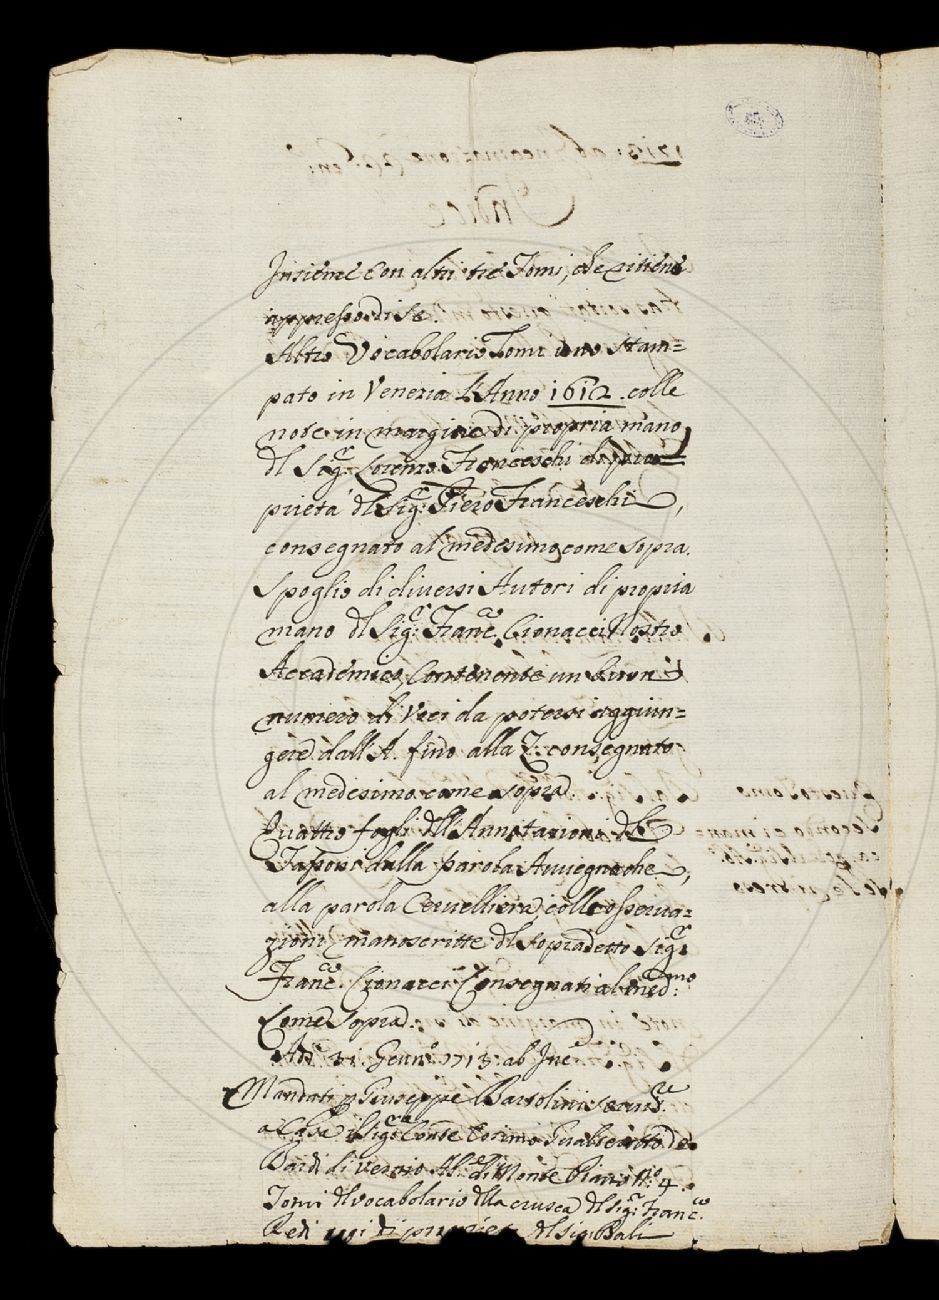 Insieme con altri tre Tomi, che ritiene
appresso di se.
Altro Vocabolario Tomi uno stam=
pato in Venezia L'Anno 1612. colle
note in margine di propria mano
dl Sig.r Lorenzo Franceschi di pro=
prietà dl Sig.r Piero Franceschi,
consegnato al medesimo come sopra.
Spoglio di diversi Autori di propria
mano dl Sig.r Franc.co Cionacci Nostro
Accademico, Contenente un buon
numero di Voci da potersi aggiun=
gere dall'A. fino alla Z. consegnato
al medesimo come sopra.
Quattro fogli dll Annotazioni dl
dalla parola Avvegnache,
alla parola Cervelliera, coll osserva=
zioni manoscritte dl sopradetto Sig.r
Franc.co Cionacci Consegnati al med.mo
Come sopra.
Add. 31. Genn.o 1713. ab Inc.
Mandati p Giuseppe Bartolini
a Casa il Sig.r Conte Cosimo Gualterotto de
Bardi di Vernio Ab. di Monte Piano N.o 4.
Tomi dl Vocabolario dlla Crusca dl Sig.r Franc.co
Redi oggi di dl Sig. Bali